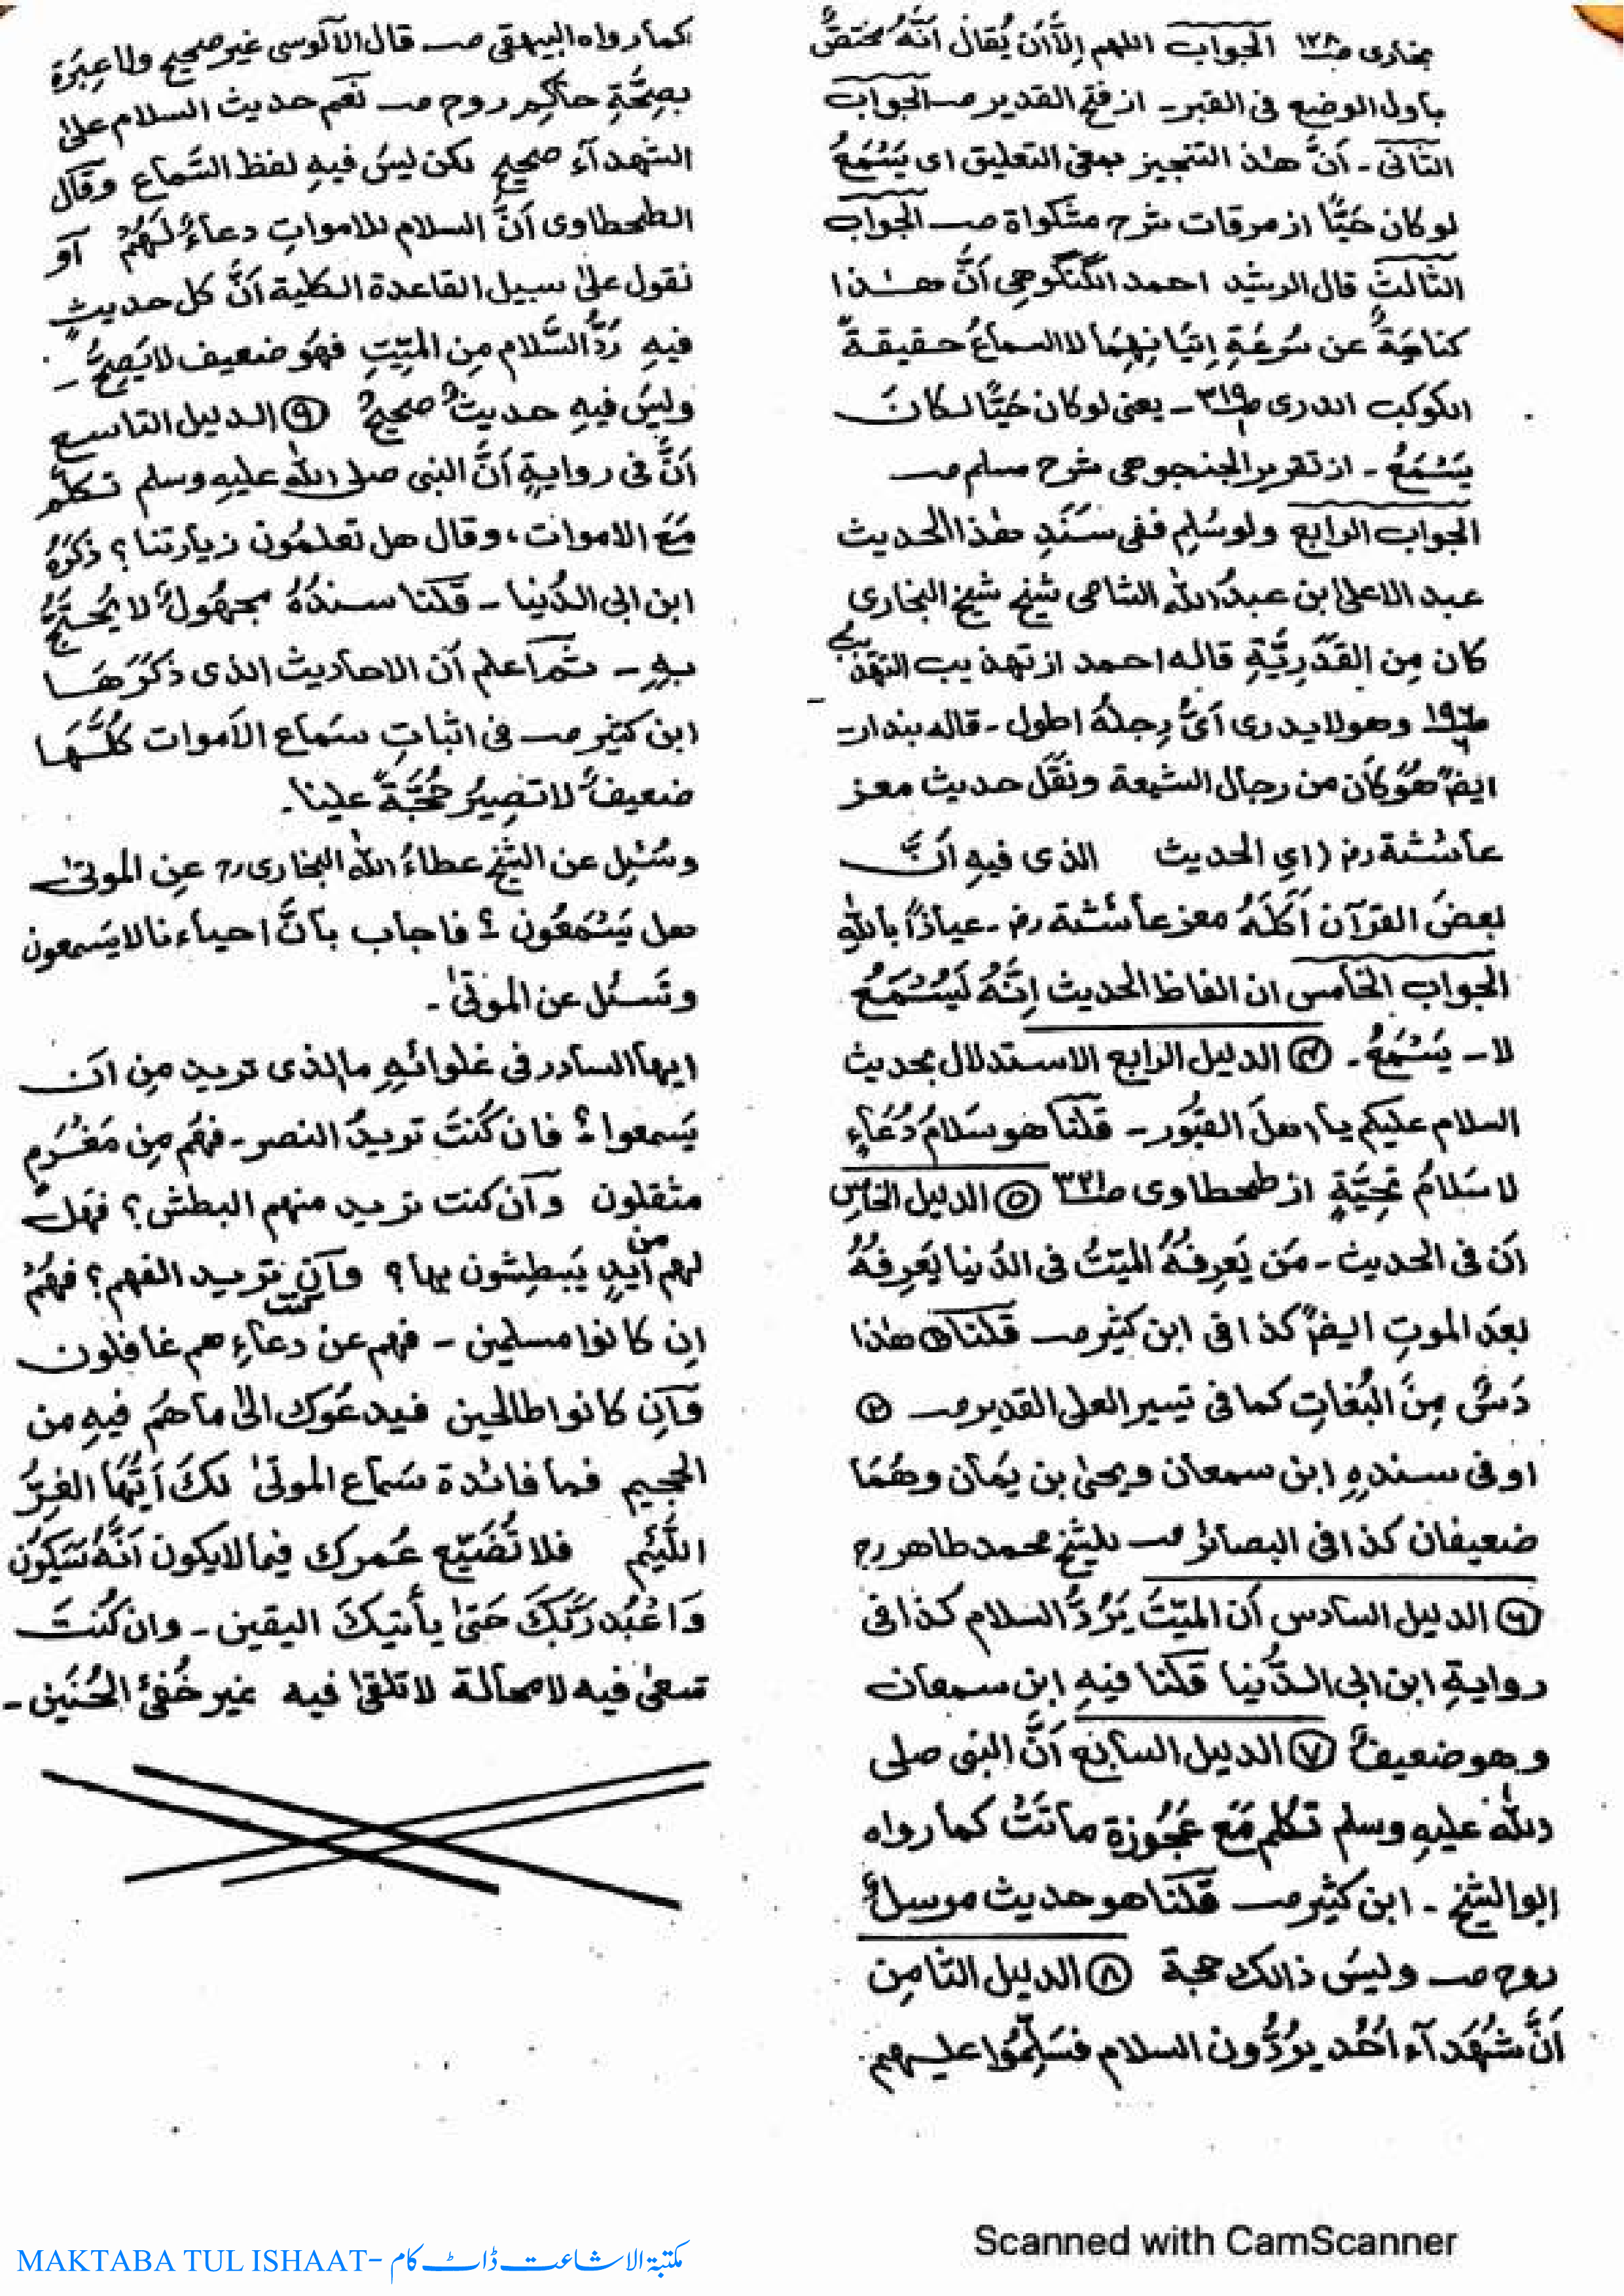 بخاری ص۱۲۸ الجواب اللهم اِلَّا اَن يُقالَ اَنَّهُ مُختَصٌّ
باول الوضع فی القبر۔ از فتح القدیر صـ الجواب
الثانی۔ اَنَّ هٰذ التنجیز بمعنی التعلیق ای یَسْمَعُ
لو کان حَیًّا از مرقات شرح مشکواة صـ الجواب
الثالث قال الرشید احمد الگنگوهی اَنَّ هٰذا
کنایةٌ عن سُرعَةِ اِتیَانِهِمَا لا السماعُ حقیقةً
الکوکب الدری ص۳۱۹ ۔ یعنی لو کان حَیًّا لکانَ
یَسْمَعُ ۔ از تقریر الجنجوهی شرح مسلم صـ
الجواب الرابع ولو سُلِم ففی سَنَدِ هٰذا الحدیث
عبد الاعلیٰ ابن عبدُ الله الشامی شیخ شیخ البخاری
کان مِن القَدَرِیَّةِ قاله احمد از تهذیب التهذیب
ص۱۹۶ وهو لا یدری اَیُّ رِجلَهُ اطول ۔ قاله بندار۔
ایضً هُوَ کان من رجال الشیعة ونَقَلَ حدیث معز
عائشة رض (ای الحدیث الذی فیهِ اَنَّ
بعضَ القرآن اَکَلَهُ معز عائشة رض ۔ عیاذًا بالله
الجواب الخامس ان الفاظ الحدیث اِنَّهُ لَیُسْمَعُ
لا ۔ یَسْمَعُ ۔ ④ الدلیل الرابع الاستدلال بحدیث
السلام علیکم یا اهلَ القبُور ۔ قلنا هو سَلامُ دُعَاءٍ
لا سَلامُ تَحِیَّةٍ از طحطاوی ص۳۳۱ ⑤ الدلیل الخامس
اَن فی الحدیث ۔ مَن یَعرِفُهُ المیّتُ فی الدُنیا یَعرِفُهُ
بعدَ الموتِ ایضً کذا فی ابن کثیر صـ قلنا ① هٰذا
دَسٌّ مِنَ البُغاتِ کما فی تیسیر العلی القدیر صـ ②
او فی سندهِ ابن سمعان و یحیٰ بن یمَان وهُمَا
ضعیفان کذا فی البصائر صـ للشیخ محمد طاهر رح
⑥ الدلیل السادس اَن المیّتَ یَرُدُّ السلام کذا فی
روایةِ ابن ابی الدُّنیا قلنا فیهِ ابن سمعان
وهو ضعیفٌ ⑦ الدلیل السابع اَنَّ النبی صلی
الله علیهِ وسلم تکلم مَعَ عَجُوزة ماتَتْ کما رواه
ابو الشیخ ۔ ابن کثیر صـ قلنا هو حدیث مرسلٌ
روح صـ ولیسَ ذالك حجة ⑧ الدلیل الثامن
اَنَّ شُهَدَآءِ اُحُد یَرُدُّون السلام فسَلِّمُوا علیهم
کما رواه البیهقی صـ قال الآلوسی غیر صحیح ولا عِبرَة
بصِحَّةِ حاکِم روح صـ نَعَم حدیث السلام علیٰ
الشهدآء صحیح لکن لیسَ فیهِ لفظ السَّماع وقال
الطحطاوی اَنَّ السلام للامواتِ دعاءٌ لَهُمْ اَو
نقول علیٰ سبیل القاعدة الکلیة اَنَّ کل حدیثٍ
فیهِ رَدُّ السَّلام مِن المَیِّتِ فهُوَ ضعیف لا یَصِحُّ ۔
ولیسَ فیهِ حدیثٌ صحیحٌ ⑨ الدلیل التاسع
اَنَّ فی روایةٍ اَنَّ النبی صلی الله علیهِ وسلم تکلَّم
مَعَ الاموات، وقال هل تعلمُون زیارتنا؟ ذَکَرَهُ
ابن ابی الدُنیا ۔ قلنا سندُهُ مجهُولٌ لا یُحتَجُّ
بهِ ۔ ثم اعلم اَن الاحادیث الذی ذَکَرَهَا
ابن کثیر صـ فی اثباتِ سَماع الاَموات کُلُّهَا
ضعیفٌ لا تصِیرُ حُجَّةً علینا۔
وسُئِل عن الشیخ عطاءُ الله البخاری رح عنِ الموتیٰ
هل یَسْمَعُون ؟ فاجاب بِاَنَّ احیاءنا لا یَسمعون
وتَسئل عن الموتیٰ ۔
ایها السادر فی غلوائهِ ما الذی ترید مِن اَن
یَسمعوا ؟ فان کُنتَ تریدُ النصر ۔ فهُم مِن مَغْرَمٍ
مثقلون وَاَن کنت ترید منهم البطش؟ فهَل
لهم من اَیدٍ یَبطِشون بها؟ وَاَن کنت ترید الفهم؟ فهُمْ
اِن کانوا مسلمین ۔ فهم عن دعآءِ هم غافلون
وَاَن کانوا طالحین فیدعُوك الیٰ ما هُم فیهِ من
الجحیم فما فائدة سَماع الموتیٰ لكَ اَیُّهَا الغِرُّ
اللَّئیم فلا تُضَیِّع عُمرك فیما لا یکون اَنَّهُ سَیکُون
وَاعْبُد رَبَّكَ حَتیٰ یأتیكَ الیقین ۔ وان کُنتَ
تسعیٰ فیه لا محالة لا تلقیٰ فیه غیر خُفَیْ الحُنَین ۔
Scanned with CamScanner
MAKTABA TUL ISHAAT- مکتبۃ الاشاعت ڈاٹ کام